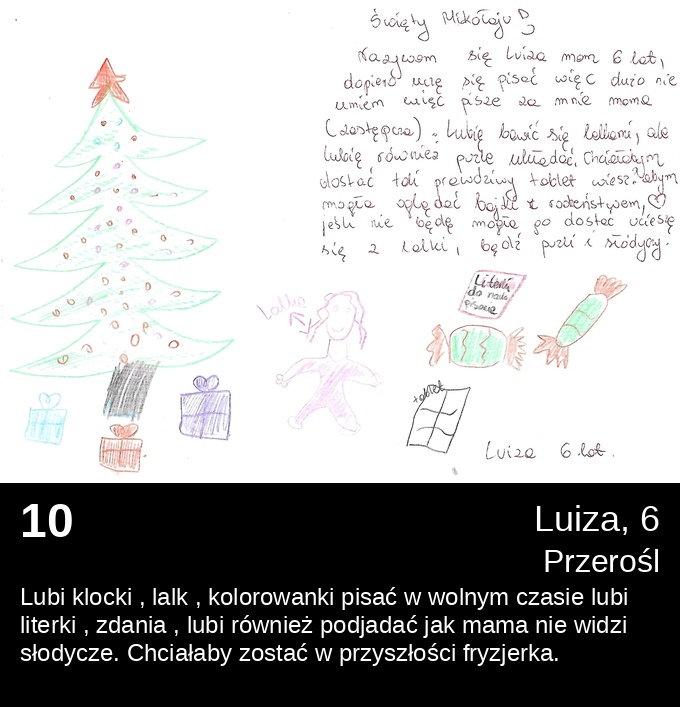 Święty Mikołaju :)
Nazywam się Luiza mam 6 lat,
dopiero uczę się pisać więc dużo nie
umiem więc pisze za mnie mama
(zastępcza). Lubię bawić się lalkami, ale
lubię również puzle układać. Chciałabym
dostać taki prawdziwy tablet wiesz? Żebym
mogła oglądać bajki z rodzeństwem, ♡
jeśli nie będę mogła go dostać ucieszę
się z lalki, bądź puzli i słodyczy.
Literki
do nauki
pisania
Lalka
tablet
Luiza 6 lat.
10
Luiza, 6
Przerośl
Lubi klocki , lalk , kolorowanki pisać w wolnym czasie lubi
literki , zdania , lubi również podjadać jak mama nie widzi
słodycze. Chciałaby zostać w przyszłości fryzjerka.